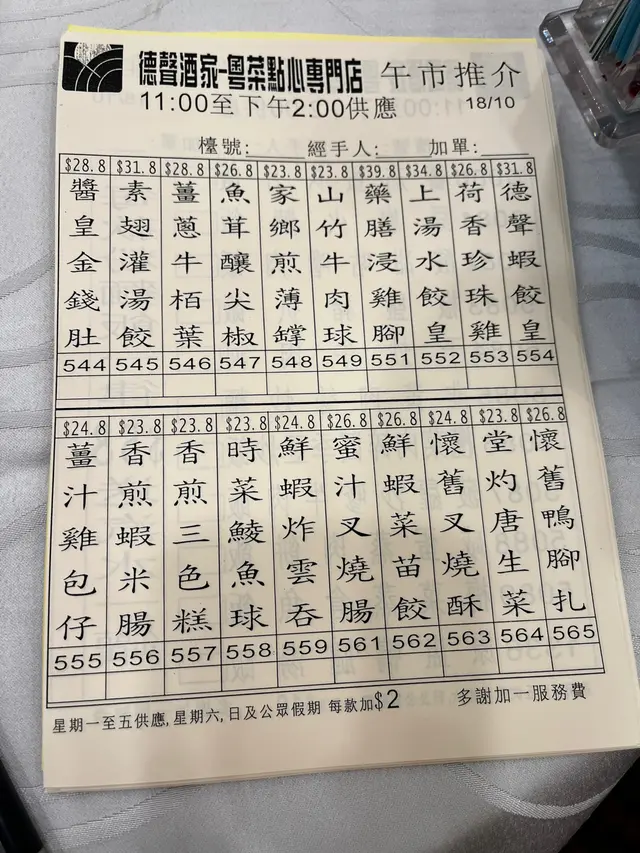 德聲酒家-粵菜點心專門店
午市推介
11:00至下午2:00供應
18/10
檯號:____ 經手人:____ 加單:____
$28.8 $31.8 $28.8 $26.8 $23.8 $23.8 $39.8 $34.8 $26.8 $31.8
醬皇金錢肚
素翅灌湯餃
薑蔥牛栢葉
魚茸釀尖椒
家鄉煎薄罉
山竹牛肉球
藥膳浸雞腳
上湯水餃皇
荷香珍珠雞
德聲蝦餃皇
544 545 546 547 548 549 551 552 553 554
$24.8 $23.8 $23.8 $23.8 $24.8 $26.8 $26.8 $24.8 $23.8 $26.8
薑汁雞包仔
香煎蝦米腸
香煎三色糕
時菜鯪魚球
鮮蝦炸雲吞
蜜汁叉燒腸
鮮蝦菜苗餃
懷舊叉燒酥
堂灼唐生菜
懷舊鴨腳扎
555 556 557 558 559 561 562 563 564 565
星期一至五供應,星期六,日及公眾假期 每款加$2
多謝加一服務費